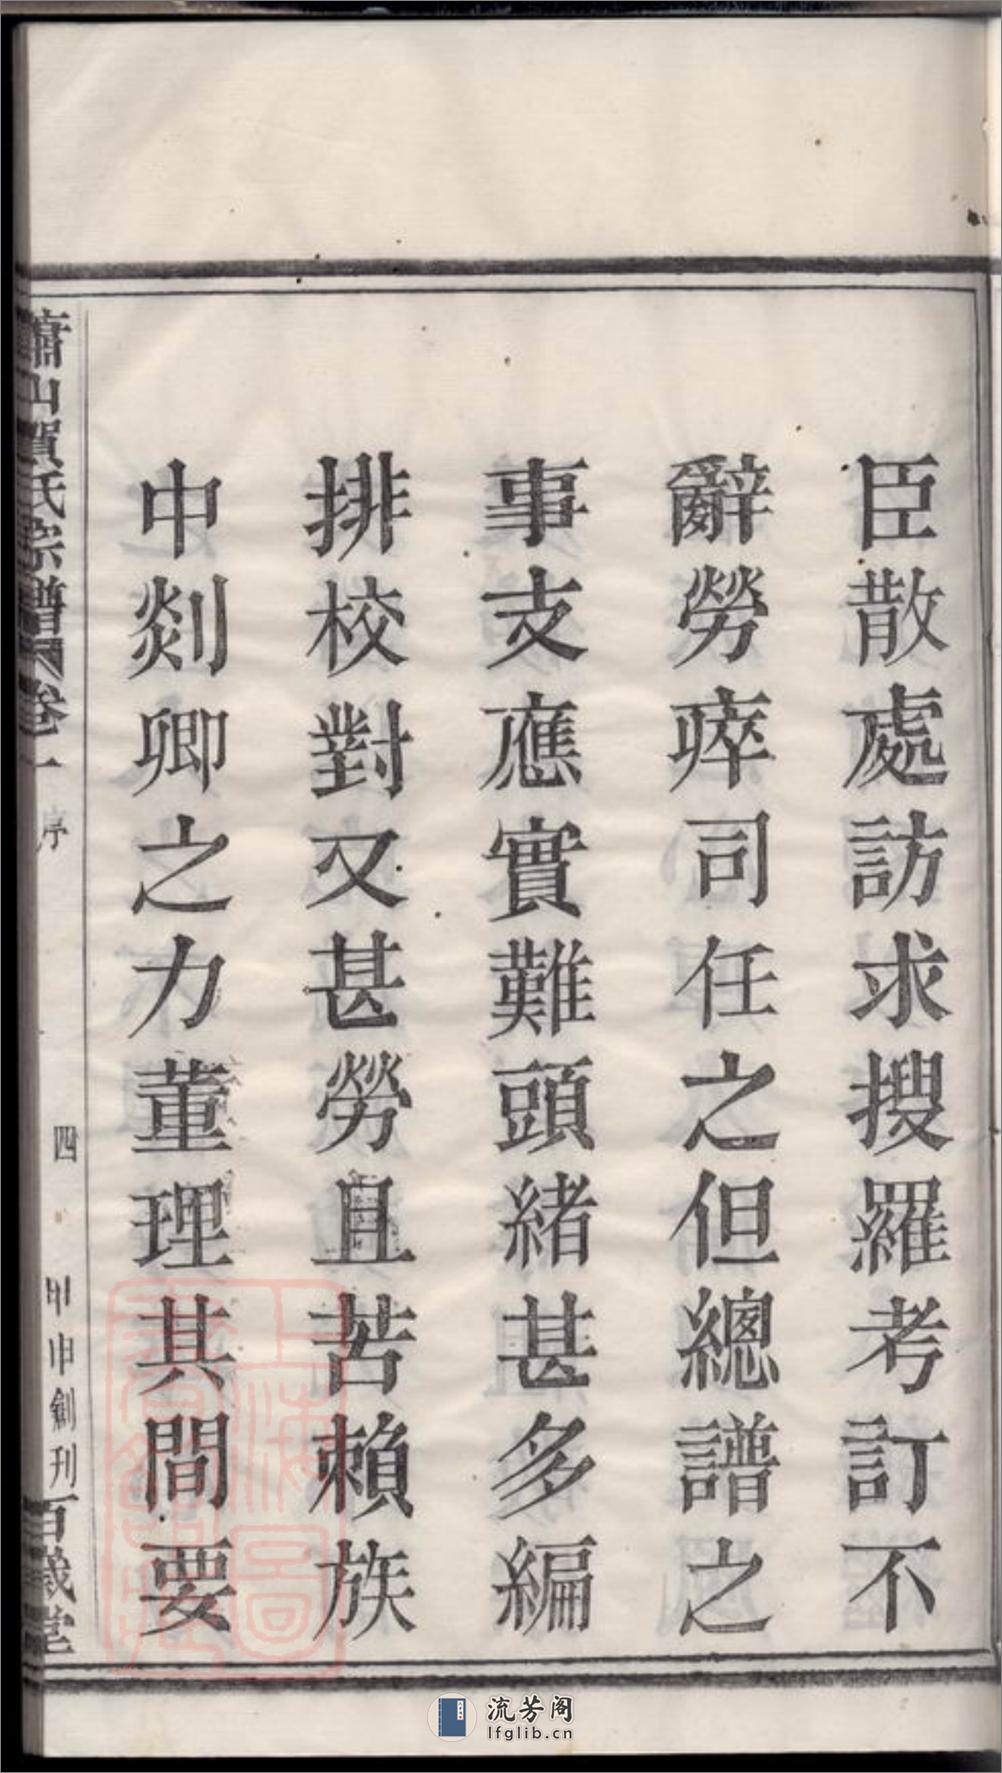 臣散處訪求搜羅考訂不
辭勞瘁司任之但總譜之
事支應實難頭緒甚多編
排校對又甚勞且苦賴族
中剡卿之力董理其間要
蕭山賀氏宗譜 卷一 序 四 甲申創刊 百歲堂
流芳阁
lfglib.cn